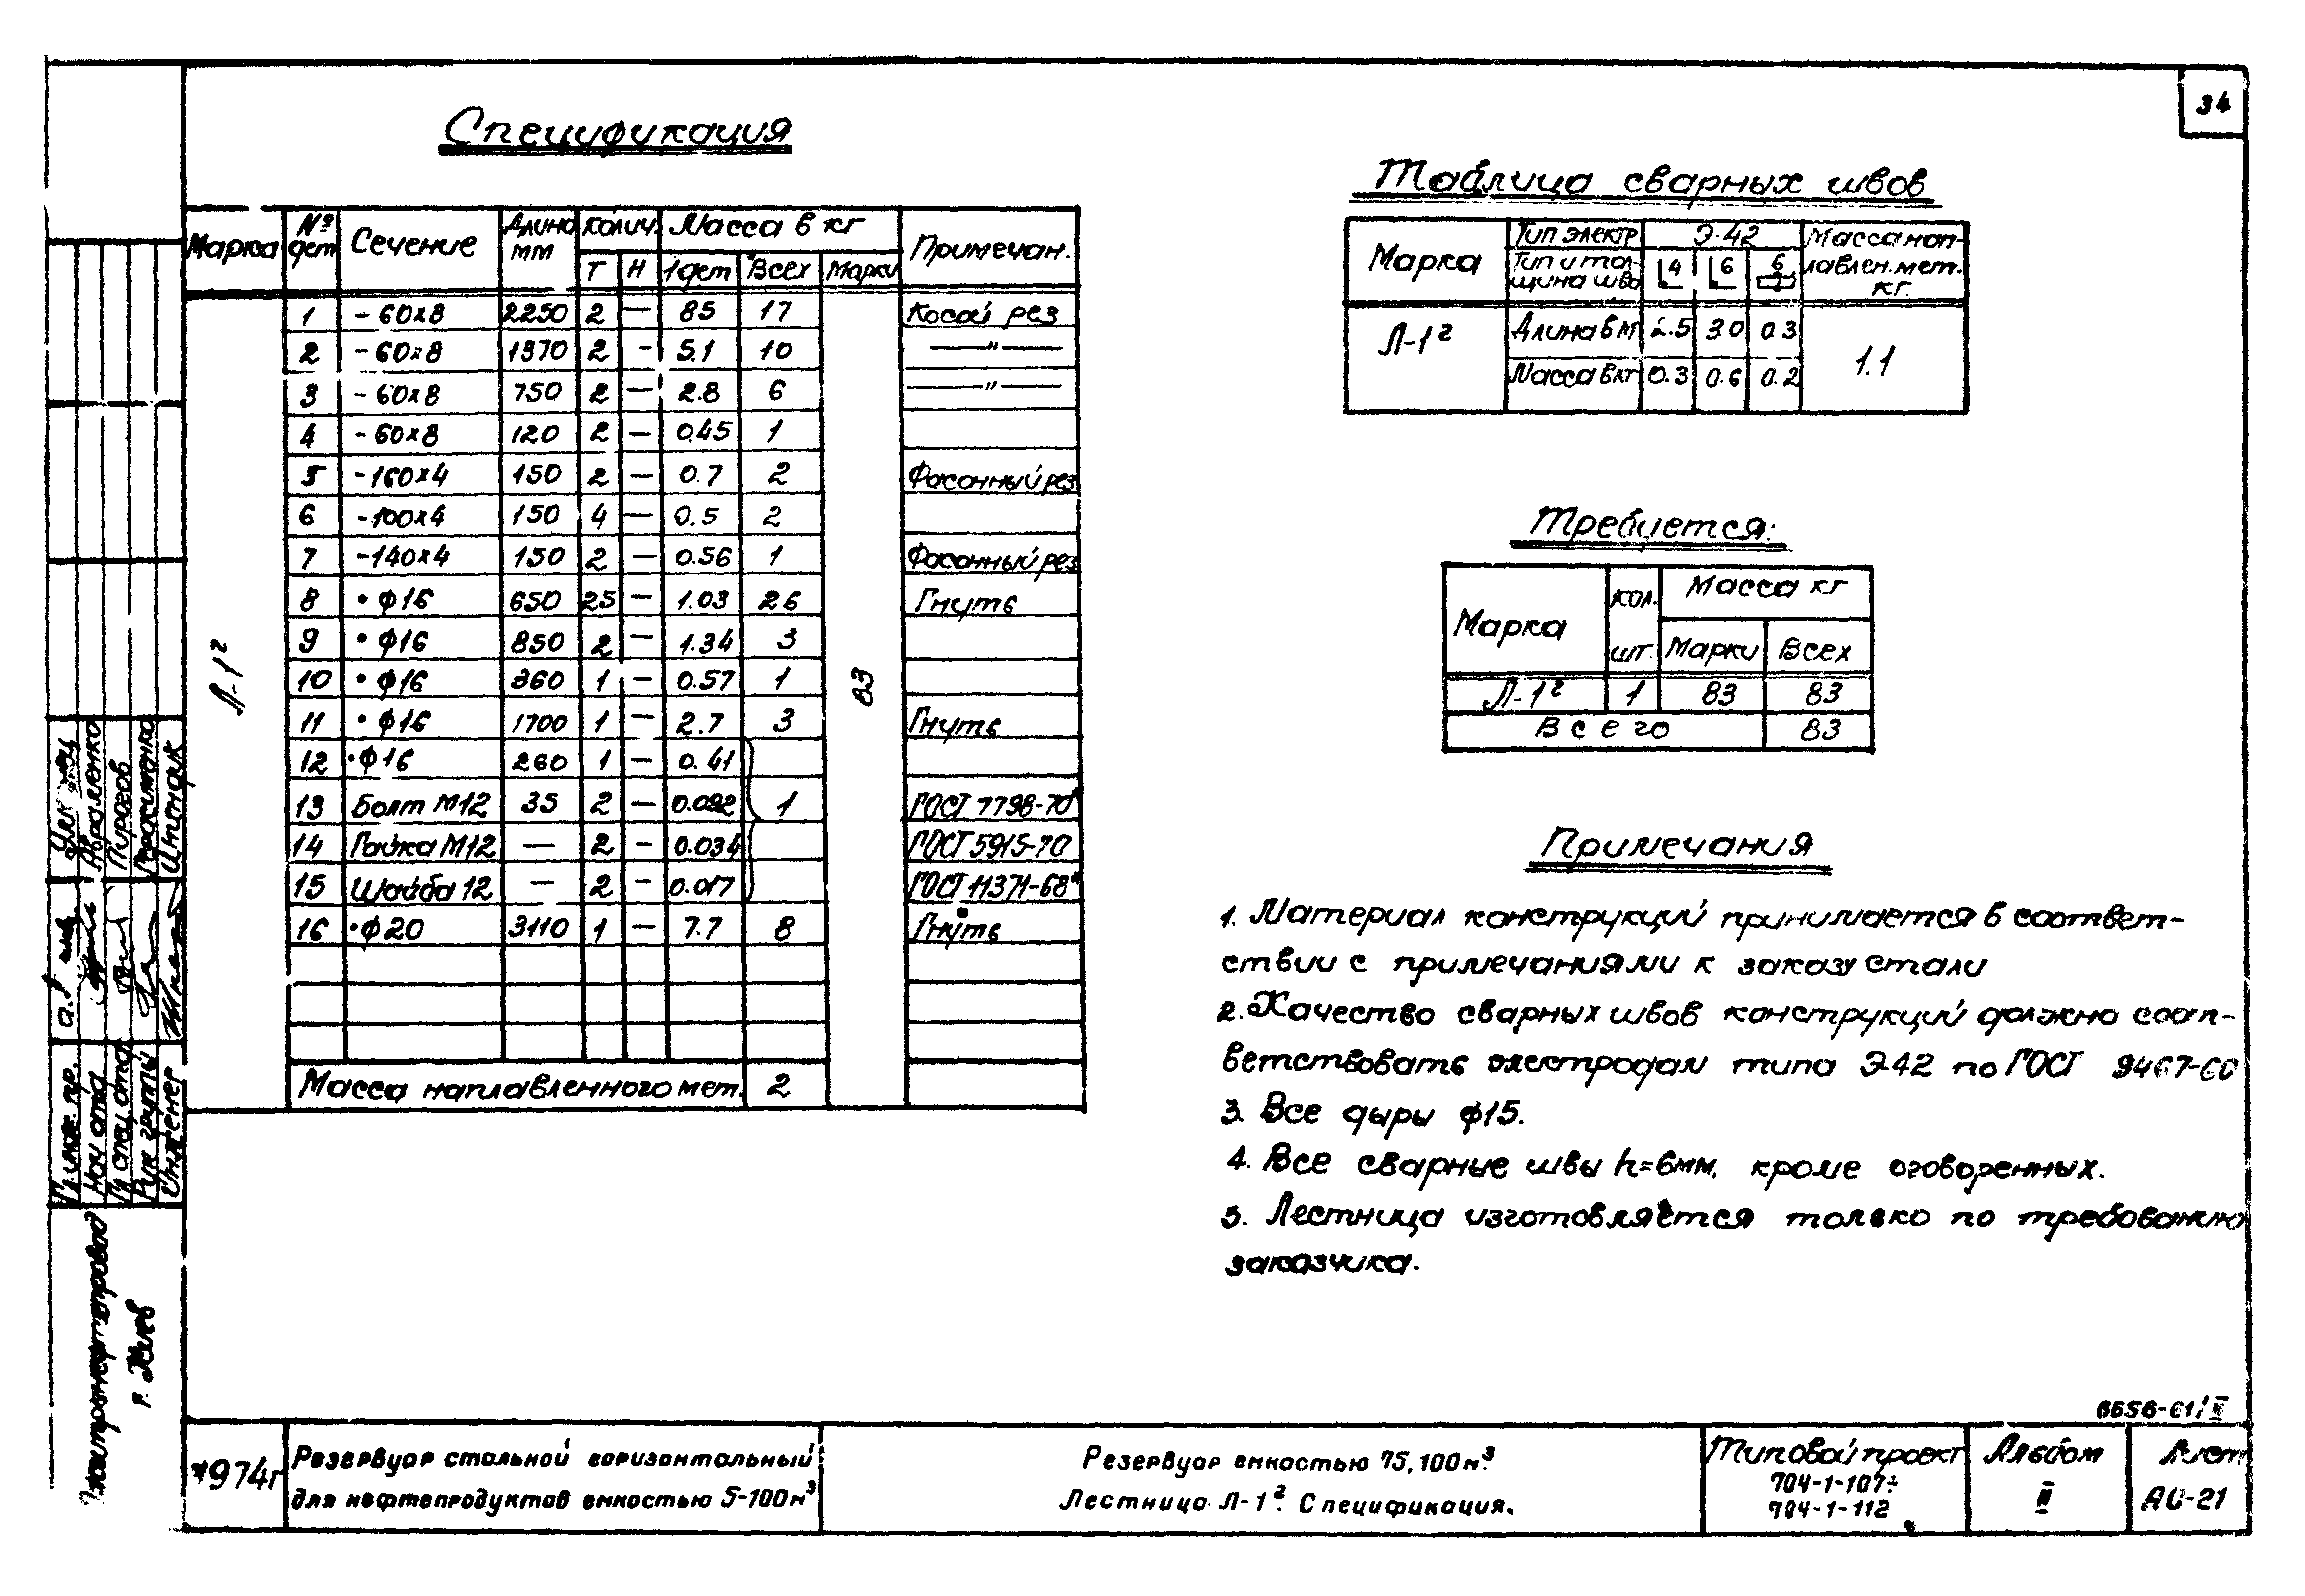 34
Спецификация
Марка | № дет | Сечение | Длина мм | Колич. | Масса в кг | Примечан.
Т | Н | 1 дет | Всех | Марки
Л-1²
83
1 | -60х8 | 2250 | 2 | — | 85 | 17 | Косой рез
2 | -60х8 | 1370 | 2 | - | 5.1 | 10 | —"—
3 | -60х8 | 750 | 2 | — | 2.8 | 6 | —"—
4 | -60х8 | 120 | 2 | — | 0.45 | 1
5 | -160х4 | 150 | 2 | — | 0.7 | 2 | Фасонный рез
6 | -100х4 | 150 | 4 | — | 0.5 | 2
7 | -140х4 | 150 | 2 | — | 0.56 | 1 | Фасонный рез
8 | • ф16 | 650 | 25 | — | 1.03 | 26 | Гнуть
9 | • ф16 | 850 | 2 | — | 1.34 | 3
10 | • ф16 | 360 | 1 | — | 0.57 | 1
11 | • ф16 | 1700 | 1 | — | 2.7 | 3 | Гнуть
12 | • ф16 | 260 | 1 | — | 0.41
13 | Болт М12 | 35 | 2 | — | 0.092 | 1 | ГОСТ 7798-70*
14 | Гайка М12 | — | 2 | - | 0.034 | ГОСТ 5915-70
15 | Шайба 12 | — | 2 | - | 0.017 | ГОСТ 11371-68*
16 | • ф20 | 3110 | 1 | — | 7.7 | 8 | Гнуть
Масса наплавленного мет. | 2
Таблица сварных швов
Марка | Тип электр | Э-42 | Масса нап-
Тип и тол- | 4 | 6 | 6 | лавлен. мет.
щина шва | кг.
Л-1² | Длина в м | 2.5 | 3.0 | 0.3 | 1.1
Масса в кг | 0.3 | 0.6 | 0.2
Требуется:
Марка | кол. шт. | Масса кг
Марки | Всех
Л-1² | 1 | 83 | 83
Всего | 83
Примечания
1. Материал конструкций принимается в соответ-
ствии с примечаниями к заказу стали
2. Качество сварных швов конструкций должно соот-
ветствовать электродам типа Э42 по ГОСТ 9467-60
3. Все дыры ф15.
4. Все сварные швы h=6мм, кроме оговоренных.
5. Лестница изготовляется только по требованию
заказчика.
Гл. инж. пр.
Нач отд | Авраменко
Гл спец отд | Пирогов
Рук группы | Герасименко
Инженер | Шпинак
Южгипронефтепровод
г. Киев
6656-61/II
1974г
Резервуар стальной горизонтальный
для нефтепродуктов емкостью 5-100м³
Резервуар емкостью 75,100м³.
Лестница Л-1². Спецификация.
Типовой проект
704-1-107÷
704-1-112
Альбом
II
Лист
АС-21